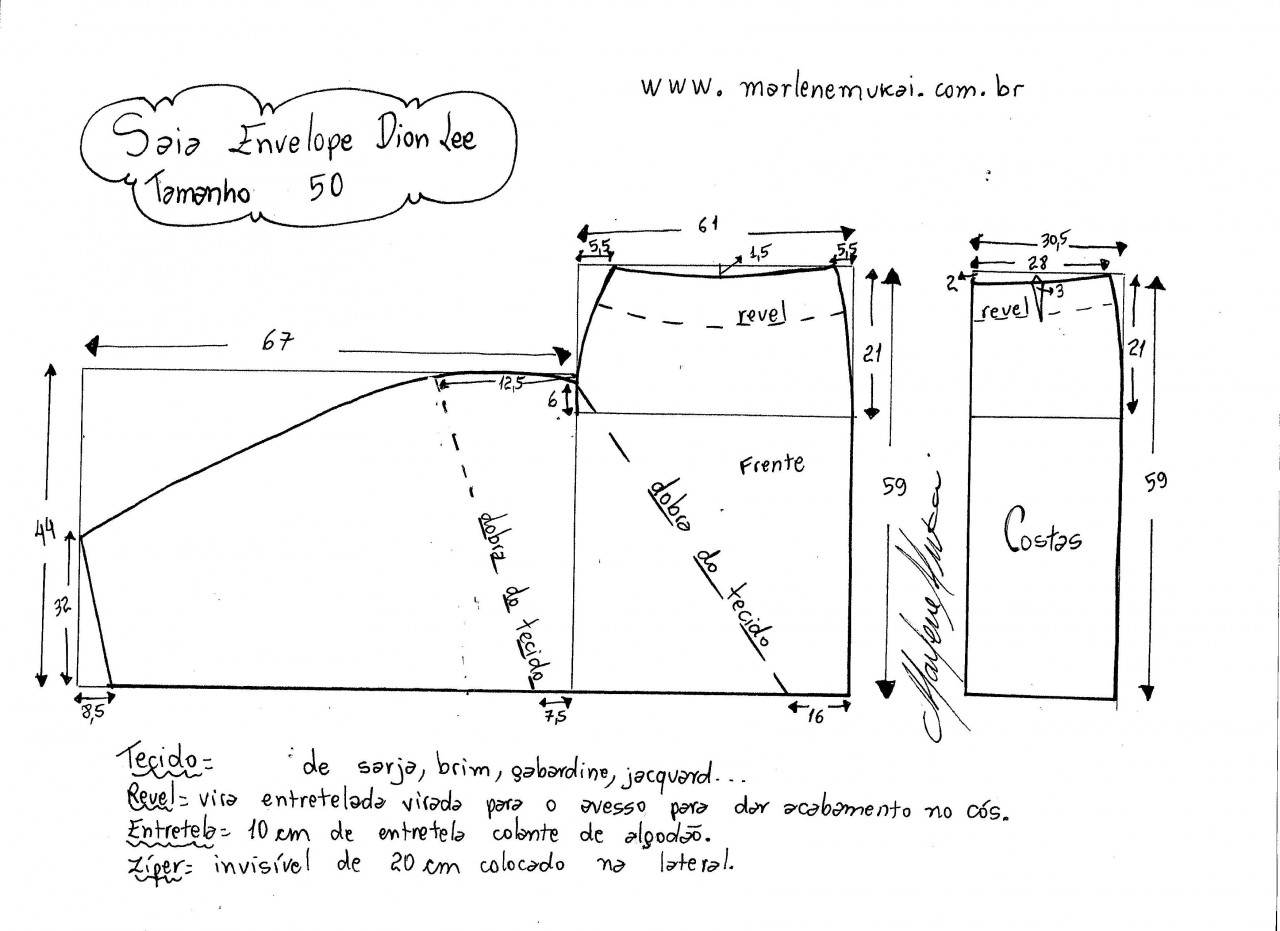 www. marlenemukai. com. br
Saia Envelope Dion Lee
Tamanho 50
61
5,5
1,5
5,5
30,5
28
2
3
revel
revel
67
12,5
6
21
21
Frente
59
59
44
dobra do tecido
dobra do tecido
Costas
32
Marlene Mukai.
8,5
7,5
16
Tecido= de sarja, brim, gabardine, jacquard...
Revel= vira entretelada virada para o avesso para dar acabamento no cós.
Entretela= 10 cm de entretela colante de algodão.
Zíper= invisível de 20 cm colocado na lateral.